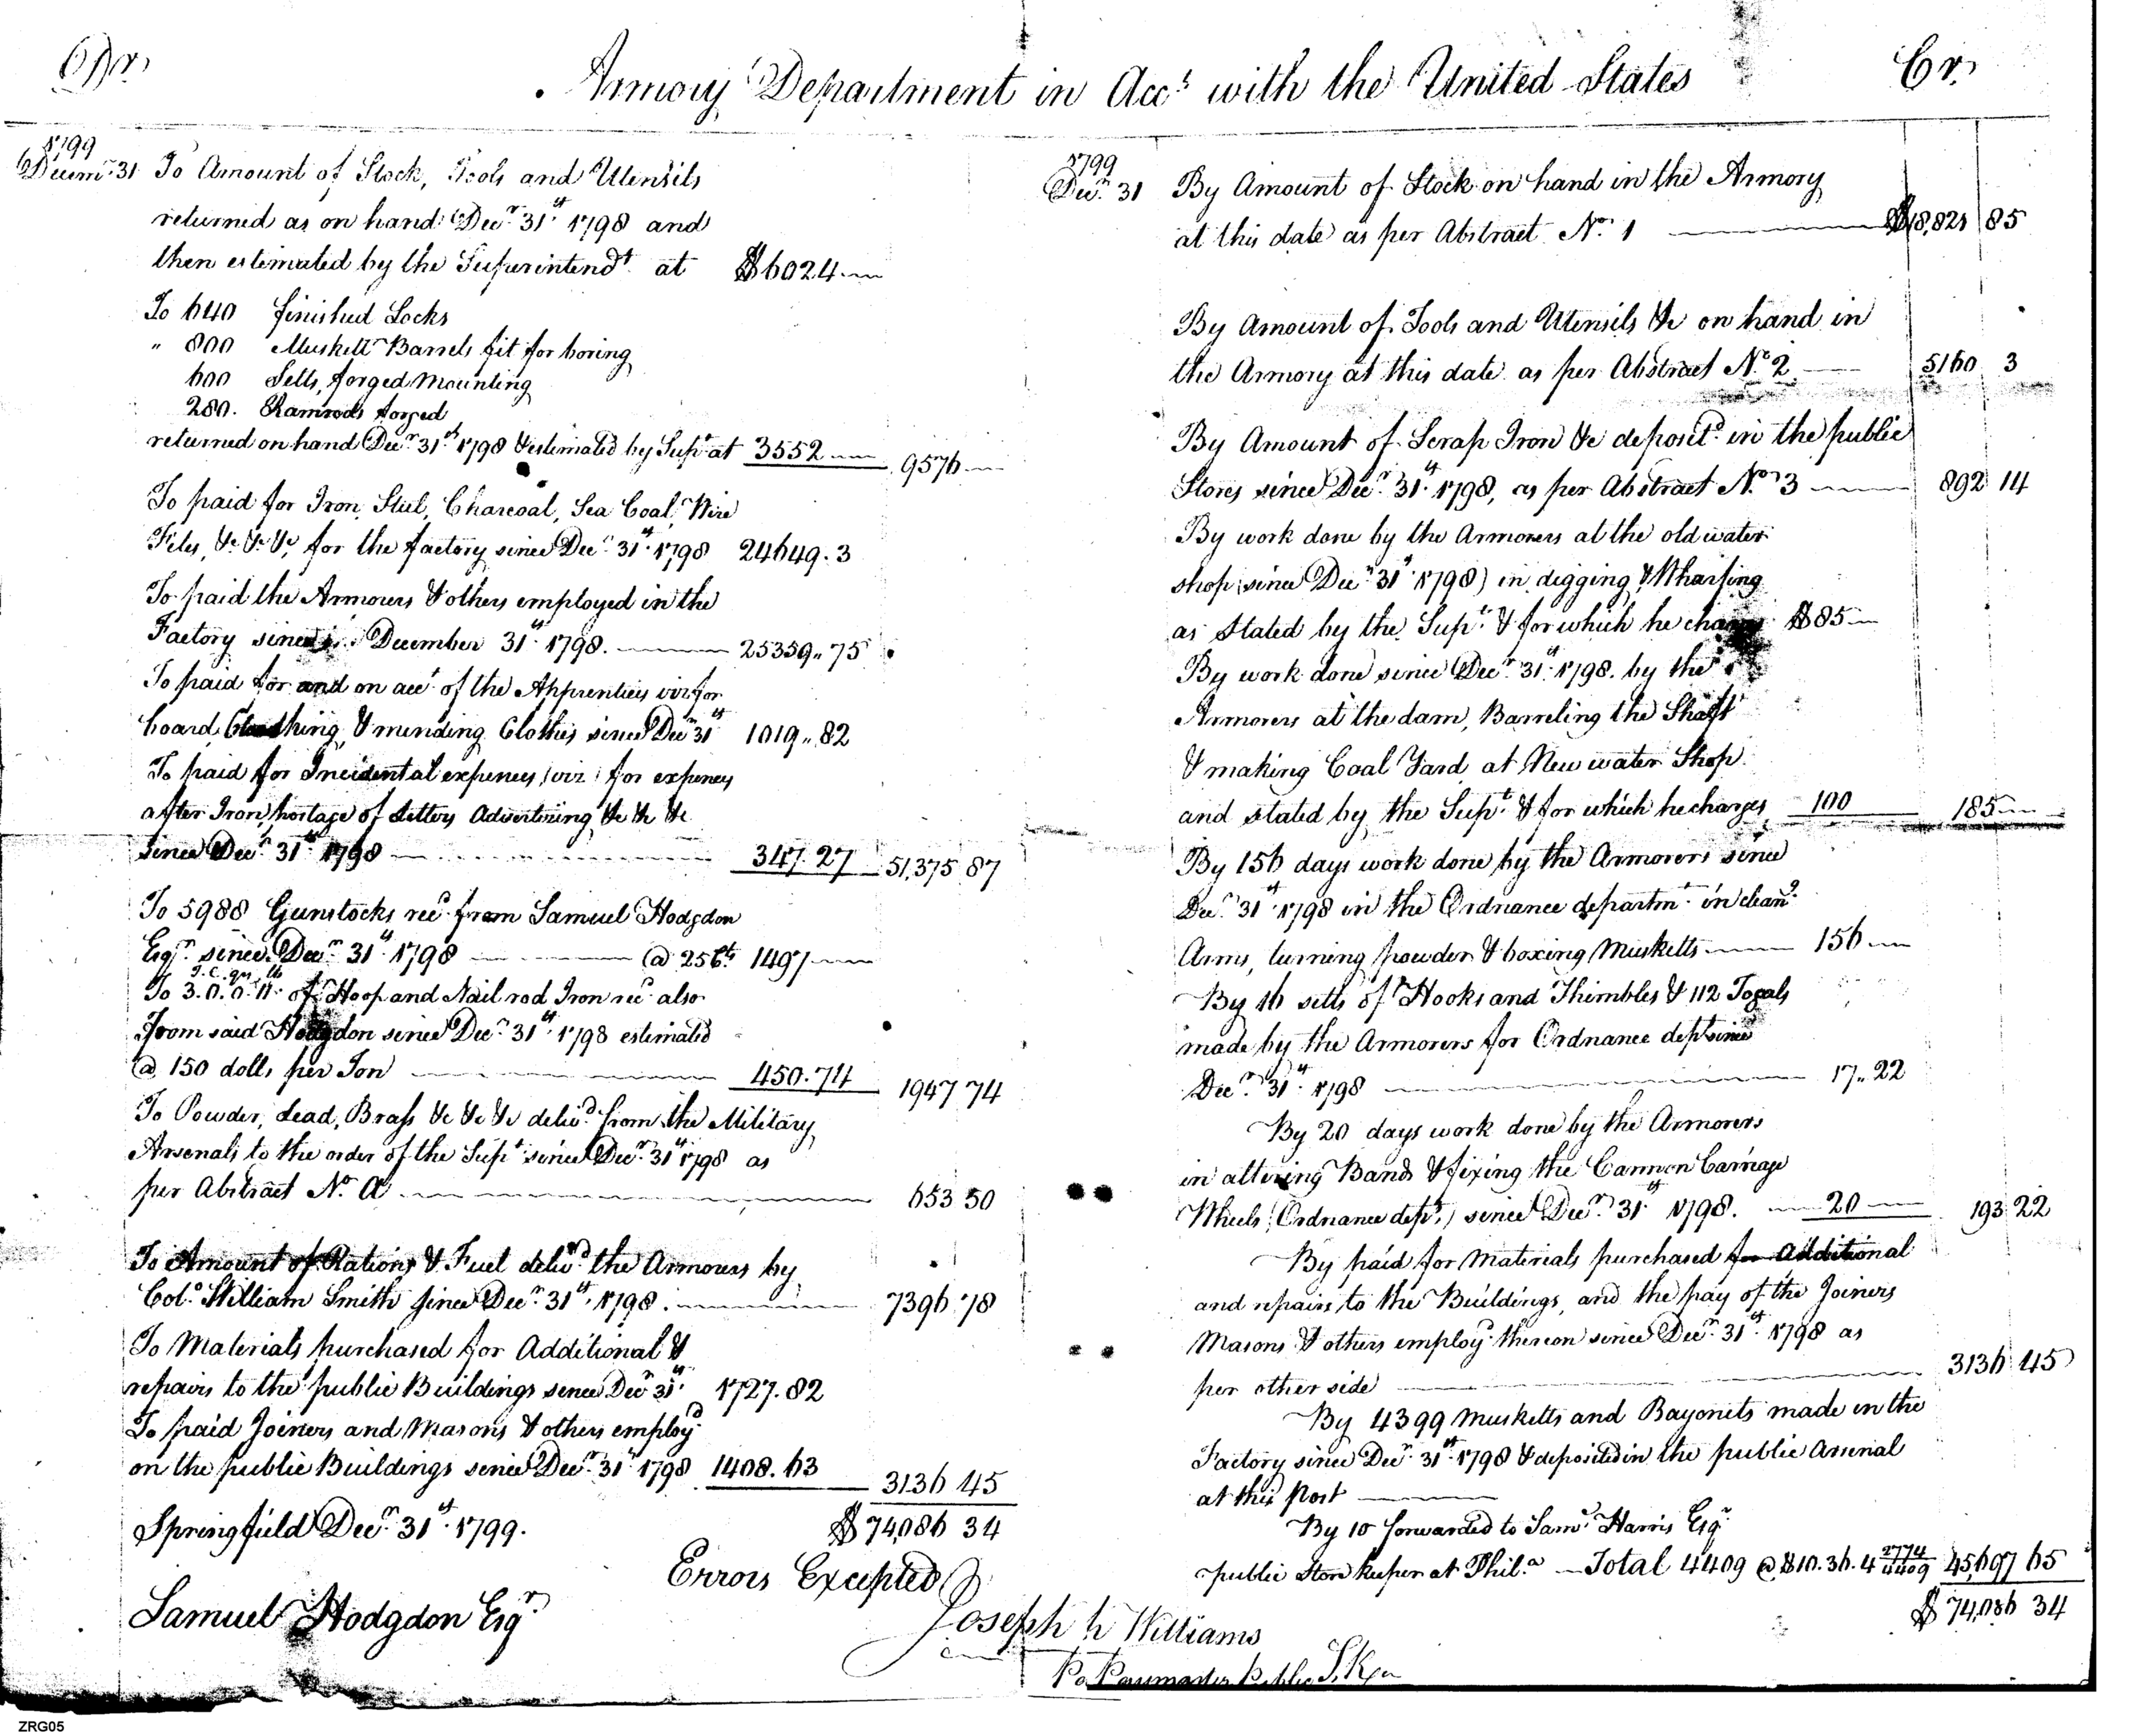 Dr.
Armory Department in Acct with the United States
Cr.
1799
Decemr 31 To Amount of Stock, Tools and Utensils
returned as on hand Decr 31st 1798 and
then estimated by the Superintendt at $6024.—
To 640 finished Locks
" 800 Muskett Barrels fit for boring
600 Setts, forged Mounting
280. Ramrods forged
returned on hand Decr 31st 1798 & estimated by Supt at 3552 — 9576 —
To paid for Iron, Steel, Charcoal, Sea Coal, Wire
Files, &c &c &c, for the factory since Decr 31st 1798 24649.3
To paid the Armorers & others employed in the
Factory since December 31st 1798. — 25359.. 75
To paid for and on acct of the Apprentices viz for
board, Cloathing, & mending Clothes since Decr 31st 1019.. 82
To paid for Incidental expences, viz: for expences
after Iron, postage of Letters Advertising &c &c &c
since Decr 31st 1798 — 347.27 51,375 87
To 5988 Gunstocks recd from Samuel Hodgdon
Esqr since Decr 31st 1798 — @ 25cts 1497 —
T. C. qrs. lb
To 3. 0. 0. 11. of Hoop and Nail rod Iron recd also
from said Hodgdon since Decr 31st 1798 estimated
@ 150 dolls per Ton — 450.74 1947 74
To Powder, Lead, Brass &c &c &c delivd from the Military
Arsenals to the order of the Supt since Decr 31st 1798 as
per Abstract No. A — 653 50
To Amount of Rations & Fuel delivd the Armorers by
Colo. William Smith since Decr 31st 1798. — 7396 78
To Materials purchased for Additional &
repairs to the public Buildings since Decr 31st 1727.82
To paid Joiners and Masons & others employd
on the public Buildings since Decr 31st 1798 1408.63 3136 45
Springfield Decr 31st 1799. $74,086 34
Errors Excepted
Samuel Hodgdon Esqr
1799
Decr 31 By Amount of Stock on hand in the Armory
at this date as per Abstract No. 1 — $18,821 85
By Amount of Tools and Utensils &c on hand in
the Armory at this date as per Abstract No. 2 — 5160 3
By Amount of Scrap Iron &c depositd in the public
Stores since Decr 31st 1798, as per Abstract No. 3 — 892 14
By work done by the Armorers at the old water
shop (since Decr 31st 1798) in digging & Wharfing
as stated by the Supt & for which he charges $85 —
By work done since Decr 31st 1798. by the
Armorers at the dam, Barreling the Shaft
& making Coal Yard at New water Shop
and stated by the Supt & for which he charges 100 185 —
By 156 days work done by the Armorers since
Decr 31st 1798 in the Ordnance departmt in cleang
Arms, turning powder & boxing Musketts — 156 —
By 16 setts of Hooks and Thimbles & 112 Togals
made by the Armorers for Ordnance dept since
Decr 31st 1798 — 17.. 22
By 20 days work done by the Armorers
in altering Bands & fixing the Cannon Carriage
Wheels (Ordnance dept,) since Decr 31st 1798. — 20 — 193 22
By paid for materials purchased for Additional
and repairs to the Buildings, and the pay of the Joiners
Masons & others employd thereon since Decr 31st 1798 as
per other side — 3136 45
By 4399 Musketts and Bayonets made in the
Factory since Decr 31st 1798 & deposited in the public Arsenal
at this Post —
By 10 forwarded to Saml Harris Esqr
public Store Keeper at Phila — Total 4409 @ $10.36.4 2774/4409 45,697 65
$74,086 34
Joseph Williams
Paymaster Public S. Kr
ZRG05